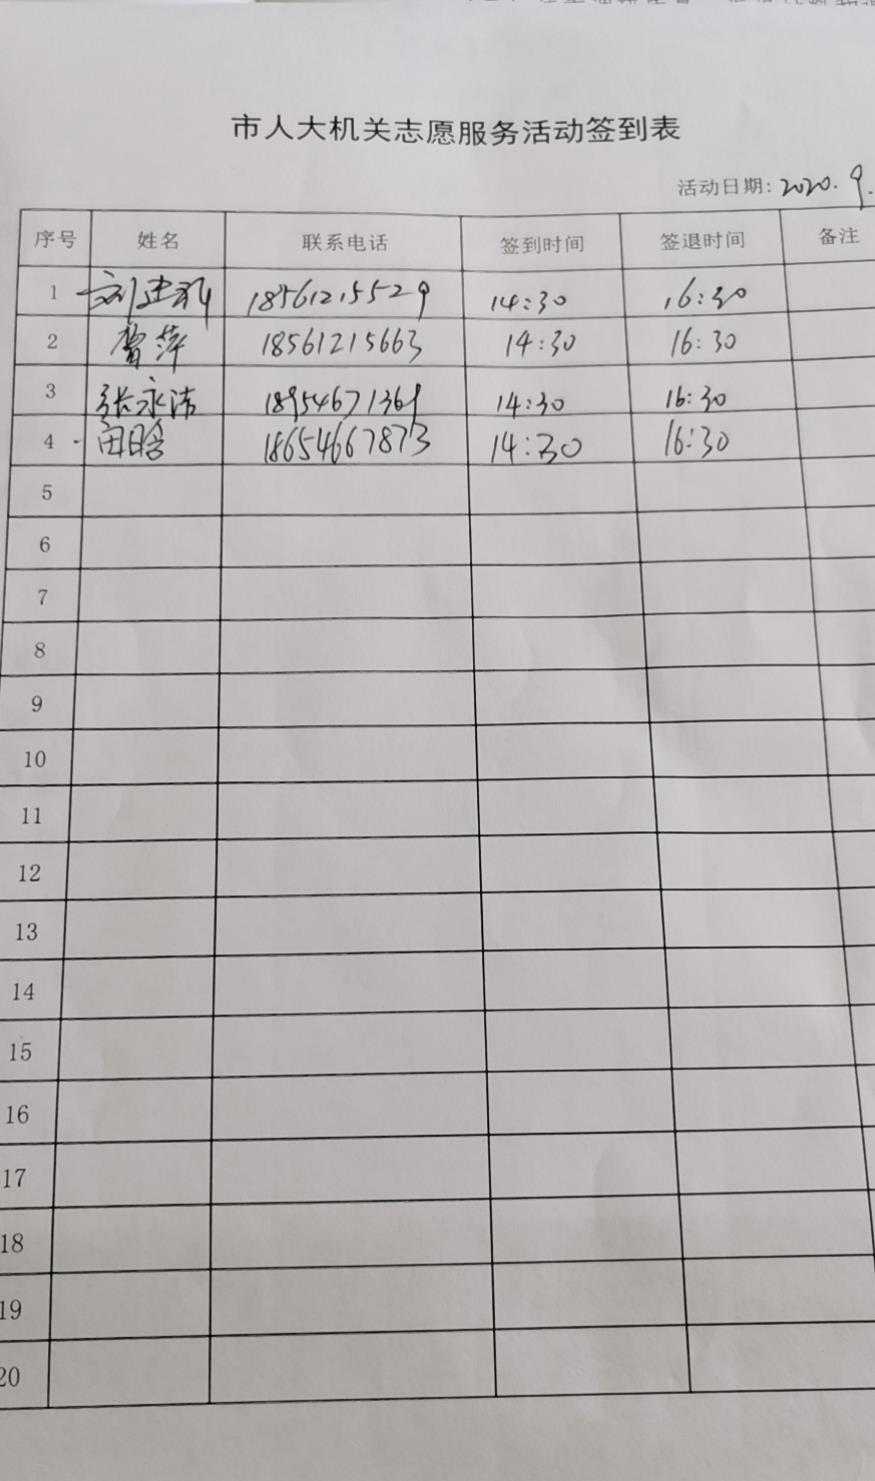 市人大机关志愿服务活动签到表
活动日期: 2020.9.
序号 姓名 联系电话 签到时间 签退时间 备注
1 刘建 18561215529 14:30 16:30
2 萍 18561215663 14:30 16:30
3 张永洁 18954671369 14:30 16:30
4 田晗 18654667873 14:30 16:30
5
6
7
8
9
10
11
12
13
14
15
16
17
18
19
20